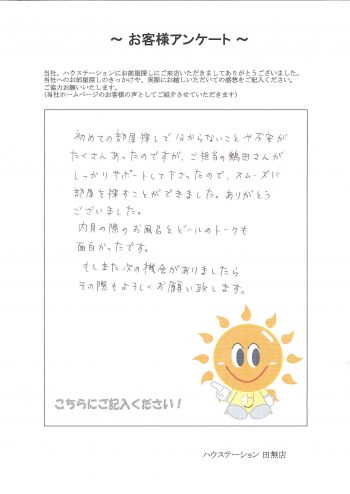 ～ お客様アンケート ～
当社、ハウステーションにお部屋探しにご来店いただきましてありがとうございました。
当社へのお部屋探しのきっかけや、実際にお越しいただいての感想をご記入ください。
ご協力お願いいたします。
(当社ホームページのお客様の声としてご紹介させていただきます)
初めての部屋探しで分からないことや不安が
たくさんあったのですが、ご担当の鶴田さんが
しっかりサポートして下さったので、スムーズに
部屋を探すことができました。ありがとう
ございました。
内見の際のお風呂とビールのトークも
面白かったです。
もしまた次の機会がありましたら
その際もよろしくお願い致します。
こちらにご記入ください！
ハウステーション 田無店